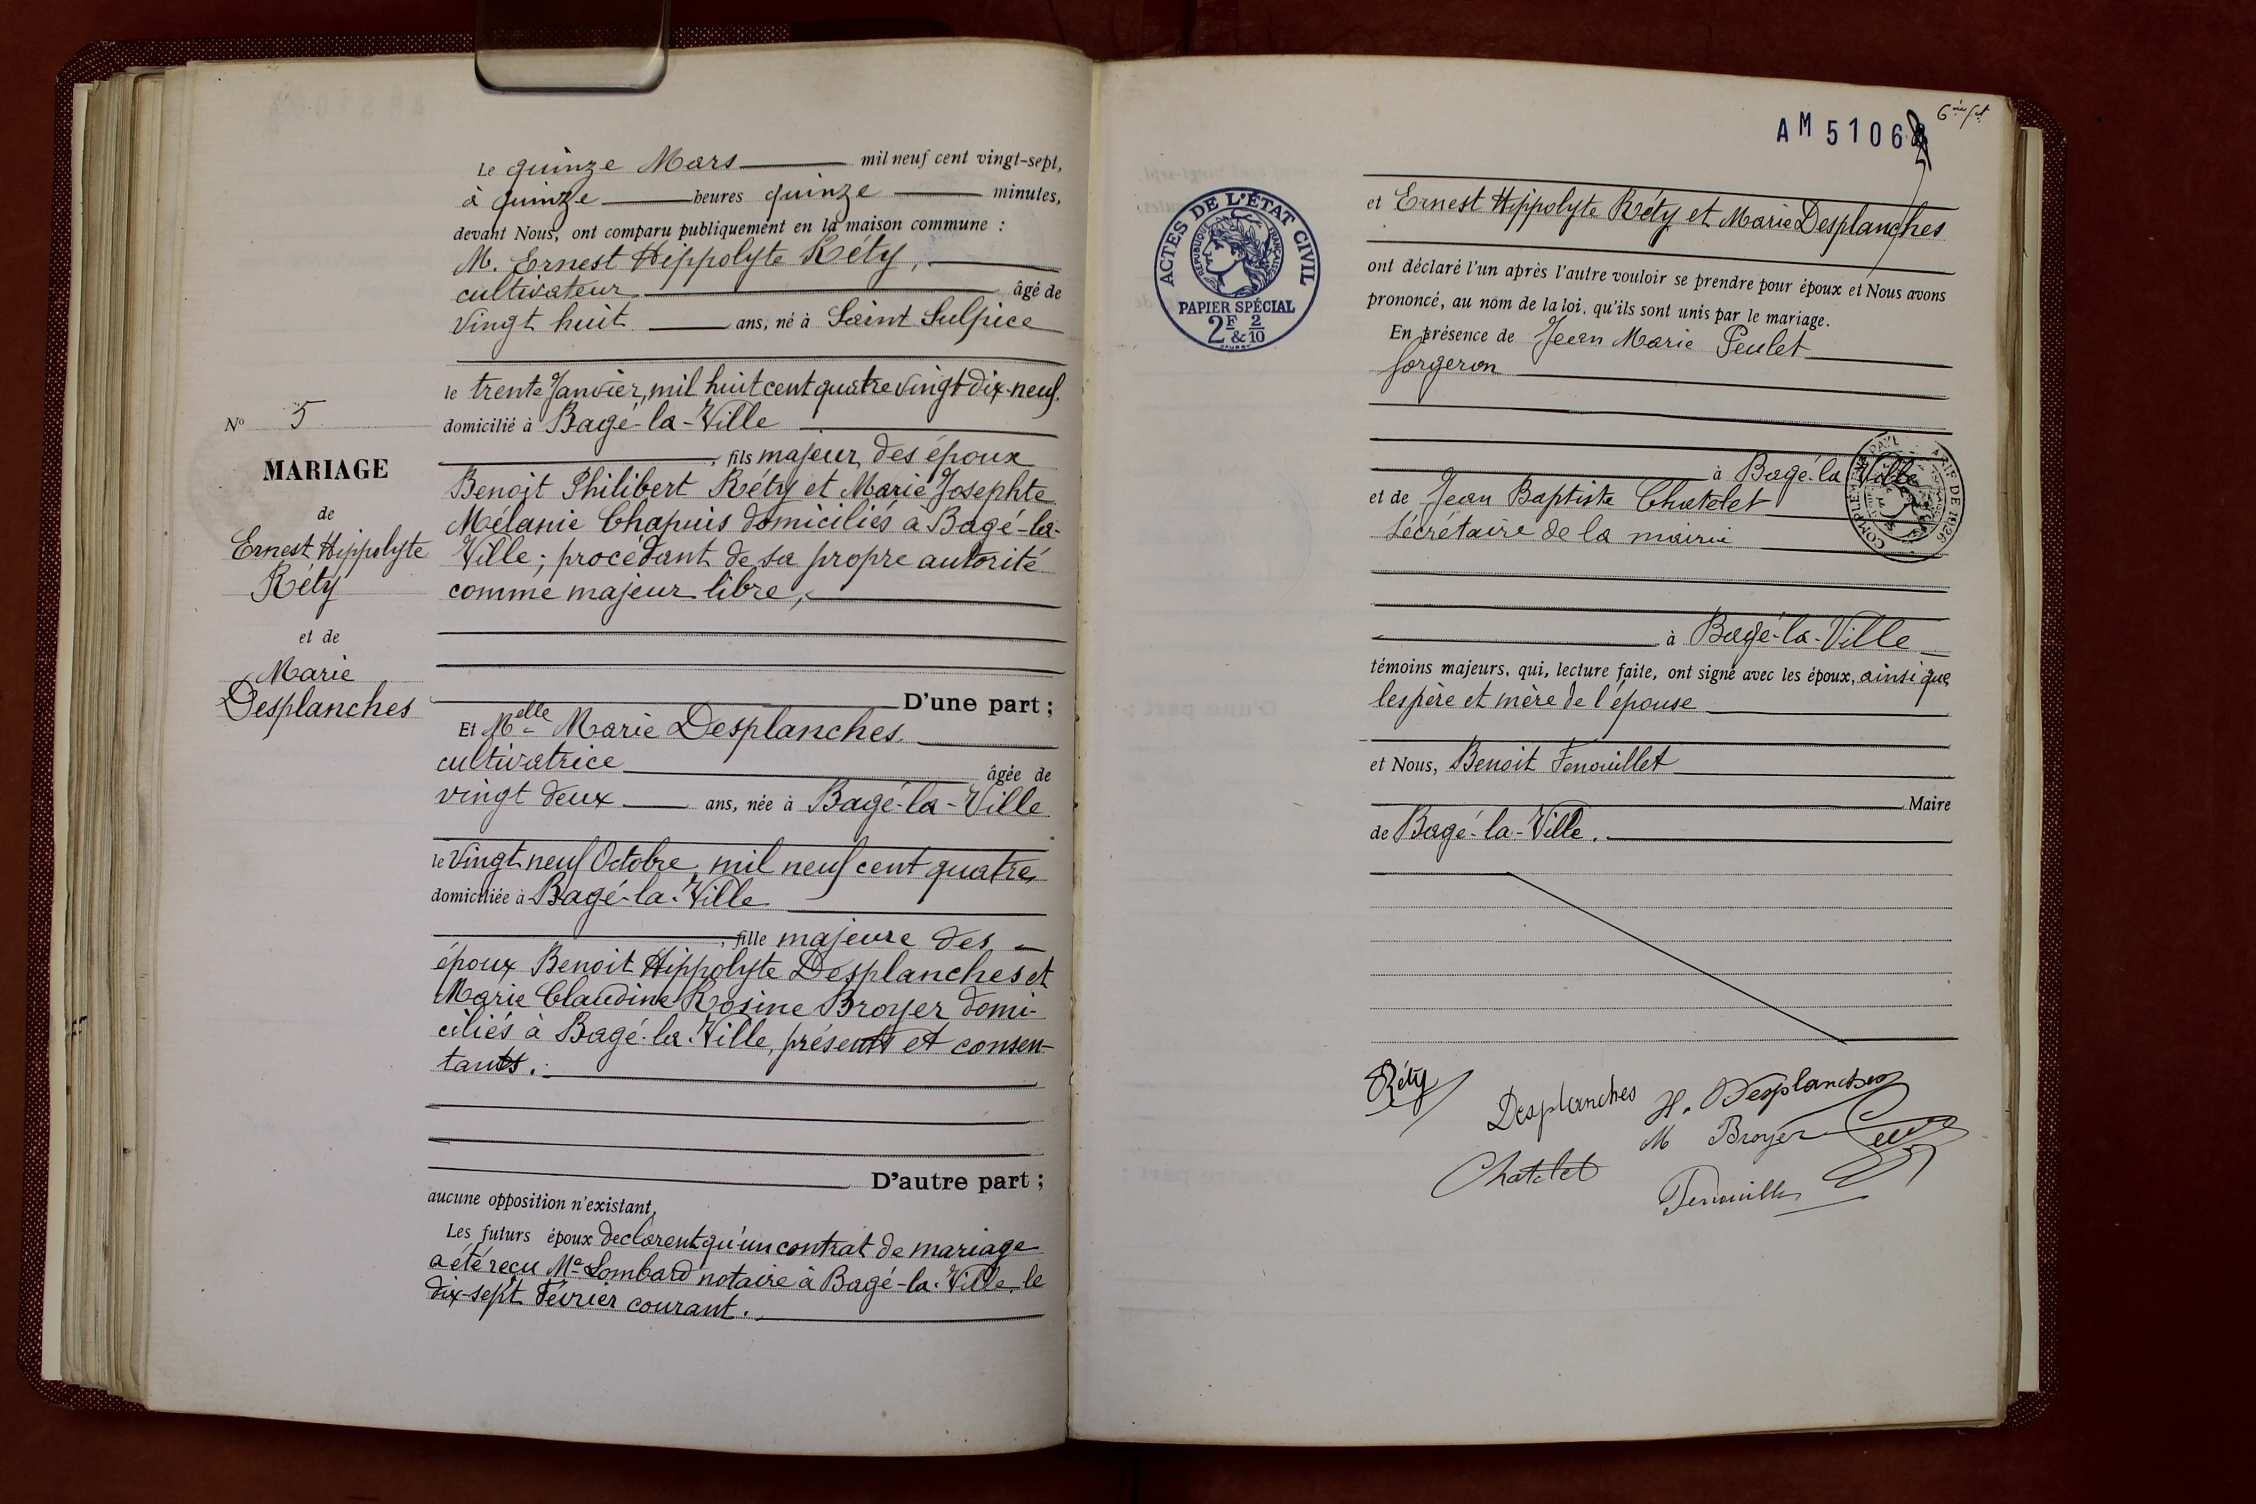 Le quinze Mars mil neuf cent vingt-sept,
à quinze heures quinze minutes,
devant Nous, ont comparu publiquement en la maison commune :
M. Ernest Hippolyte Réty,
cultivateur âgé de
vingt huit ans, né à Saint Sulpice
le trente Janvier, mil huit cent quatre vingt dix-neuf.
domicilié à Bagé-la-Ville
, fils majeur des époux
Benoit Philibert Réty et Marie Josephte
Mélanie Chapuis domiciliés à Bagé-la-
Ville ; procédant de sa propre autorité
comme majeur libre,
D'une part ;
Et Melle Marie Desplanches
cultivatrice âgée de
vingt deux ans, née à Bagé-la-Ville
le vingt neuf Octobre, mil neuf cent quatre
domiciliée à Bagé-la-Ville
, fille majeure des
époux Benoit Hippolyte Desplanches et
Marie Claudine Rosine Broyer domi-
ciliés à Bagé-la-Ville, présents et consen-
tants.
D'autre part ;
aucune opposition n'existant,
Les futurs époux declarent qu'un contrat de mariage
a été reçu Me Lombard notaire à Bagé-la-Ville, le
dix-sept Février courant.
No 5
MARIAGE
de
Ernest Hippolyte
Réty
et de
Marie
Desplanches
AM 5106
ACTES DE L'ÉTAT CIVIL
RÉPUBLIQUE FRANÇAISE
PAPIER SPÉCIAL
2F & 2/10
et Ernest Hippolyte Réty et Marie Desplanches
ont déclaré l'un après l'autre vouloir se prendre pour époux et Nous avons
prononcé, au nom de la loi, qu'ils sont unis par le mariage.
En présence de Jean Marie Peulet
forgeron
à Bagé-la-Ville
et de Jean Baptiste Chatelet
Sécrétaire de la mairie
à Bagé-la-Ville
témoins majeurs, qui, lecture faite, ont signé avec les époux, ainsi que
les père et mère de l'épouse
et Nous, Benoit Fenouillet
Maire
de Bagé-la-Ville.
Réty
Desplanches
H. Desplanches
M Broyer
Chatelet
Fenouillet